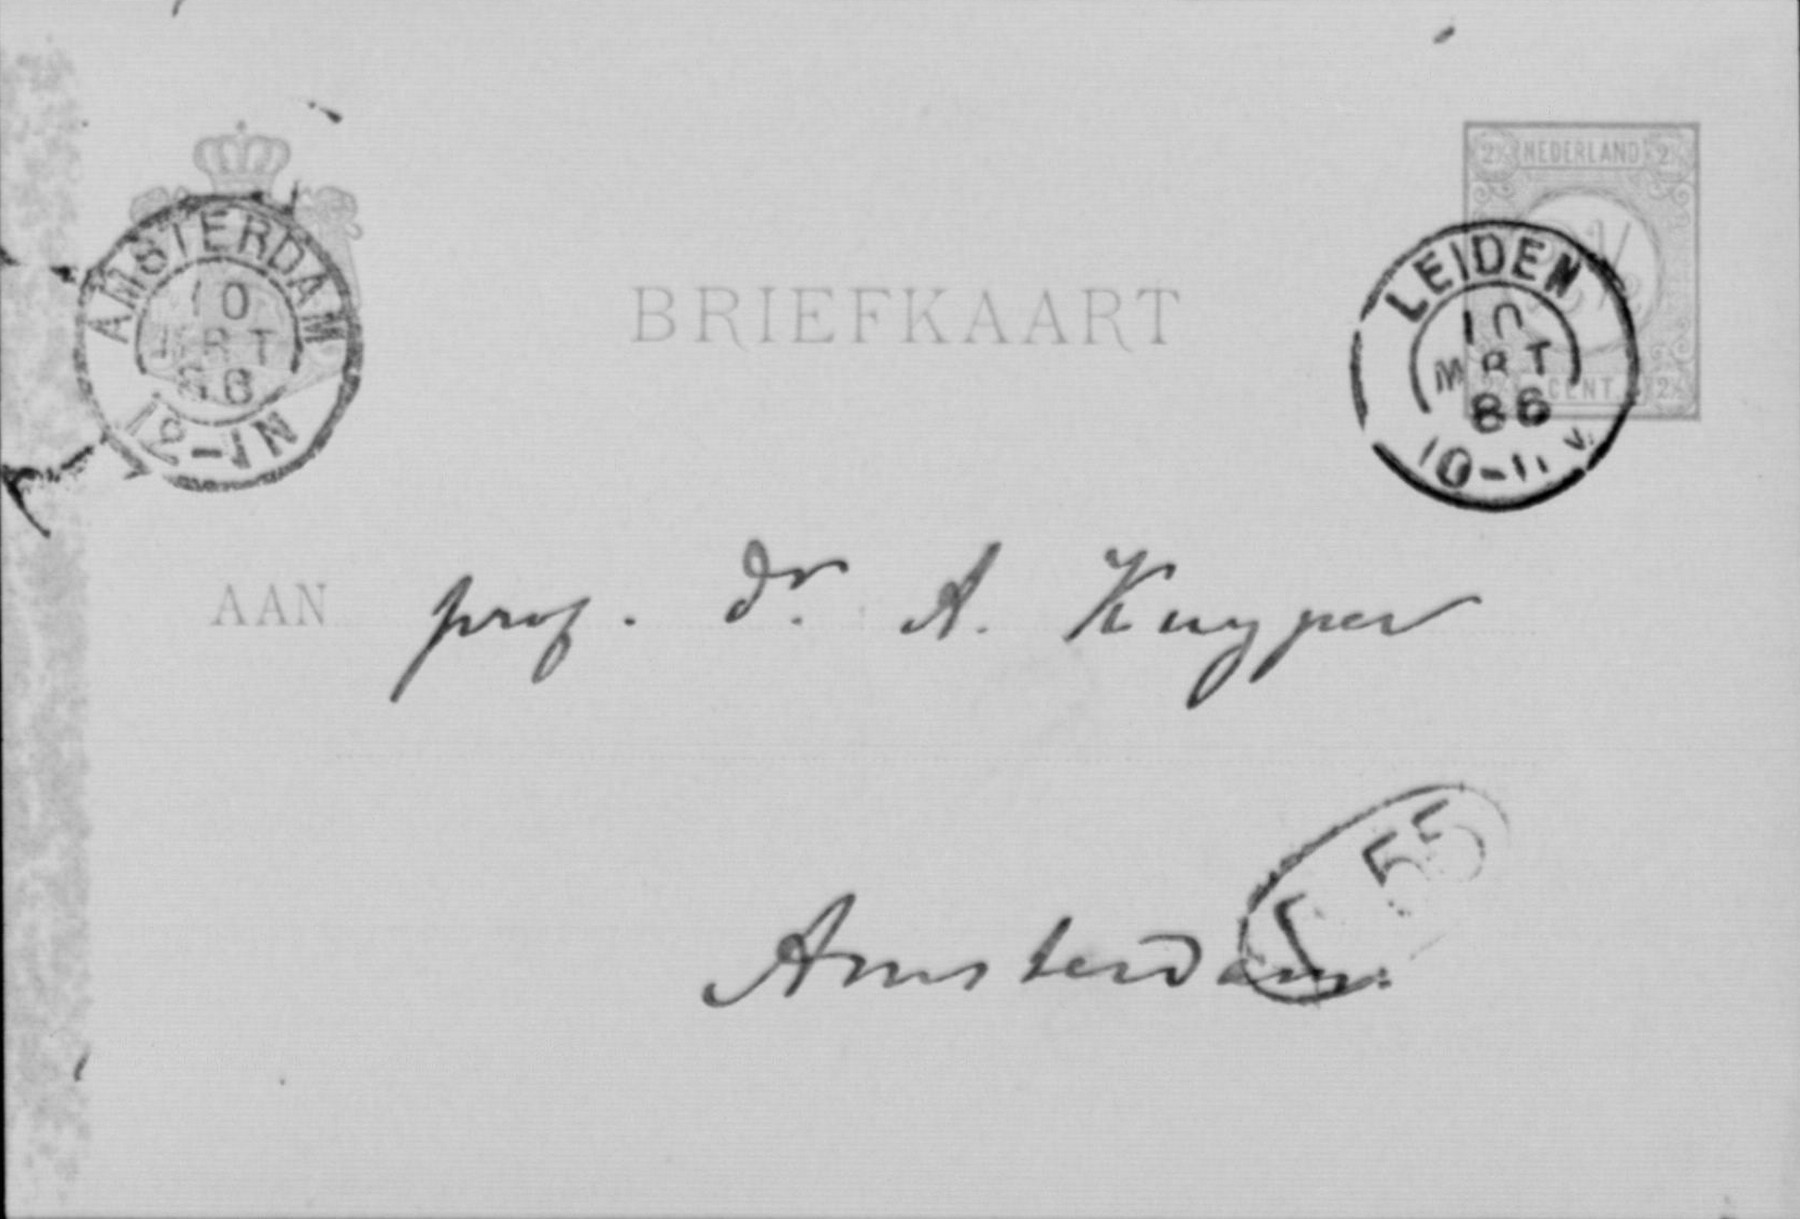 2½ NEDERLAND 2½
2½
CENT 2½
AMSTERDAM
10
MRT
86
12-1N
LEIDEN
10
MRT
86
10-11 V
BRIEFKAART
AAN prof. dr. A. Kuyper
Amsterdam.
55